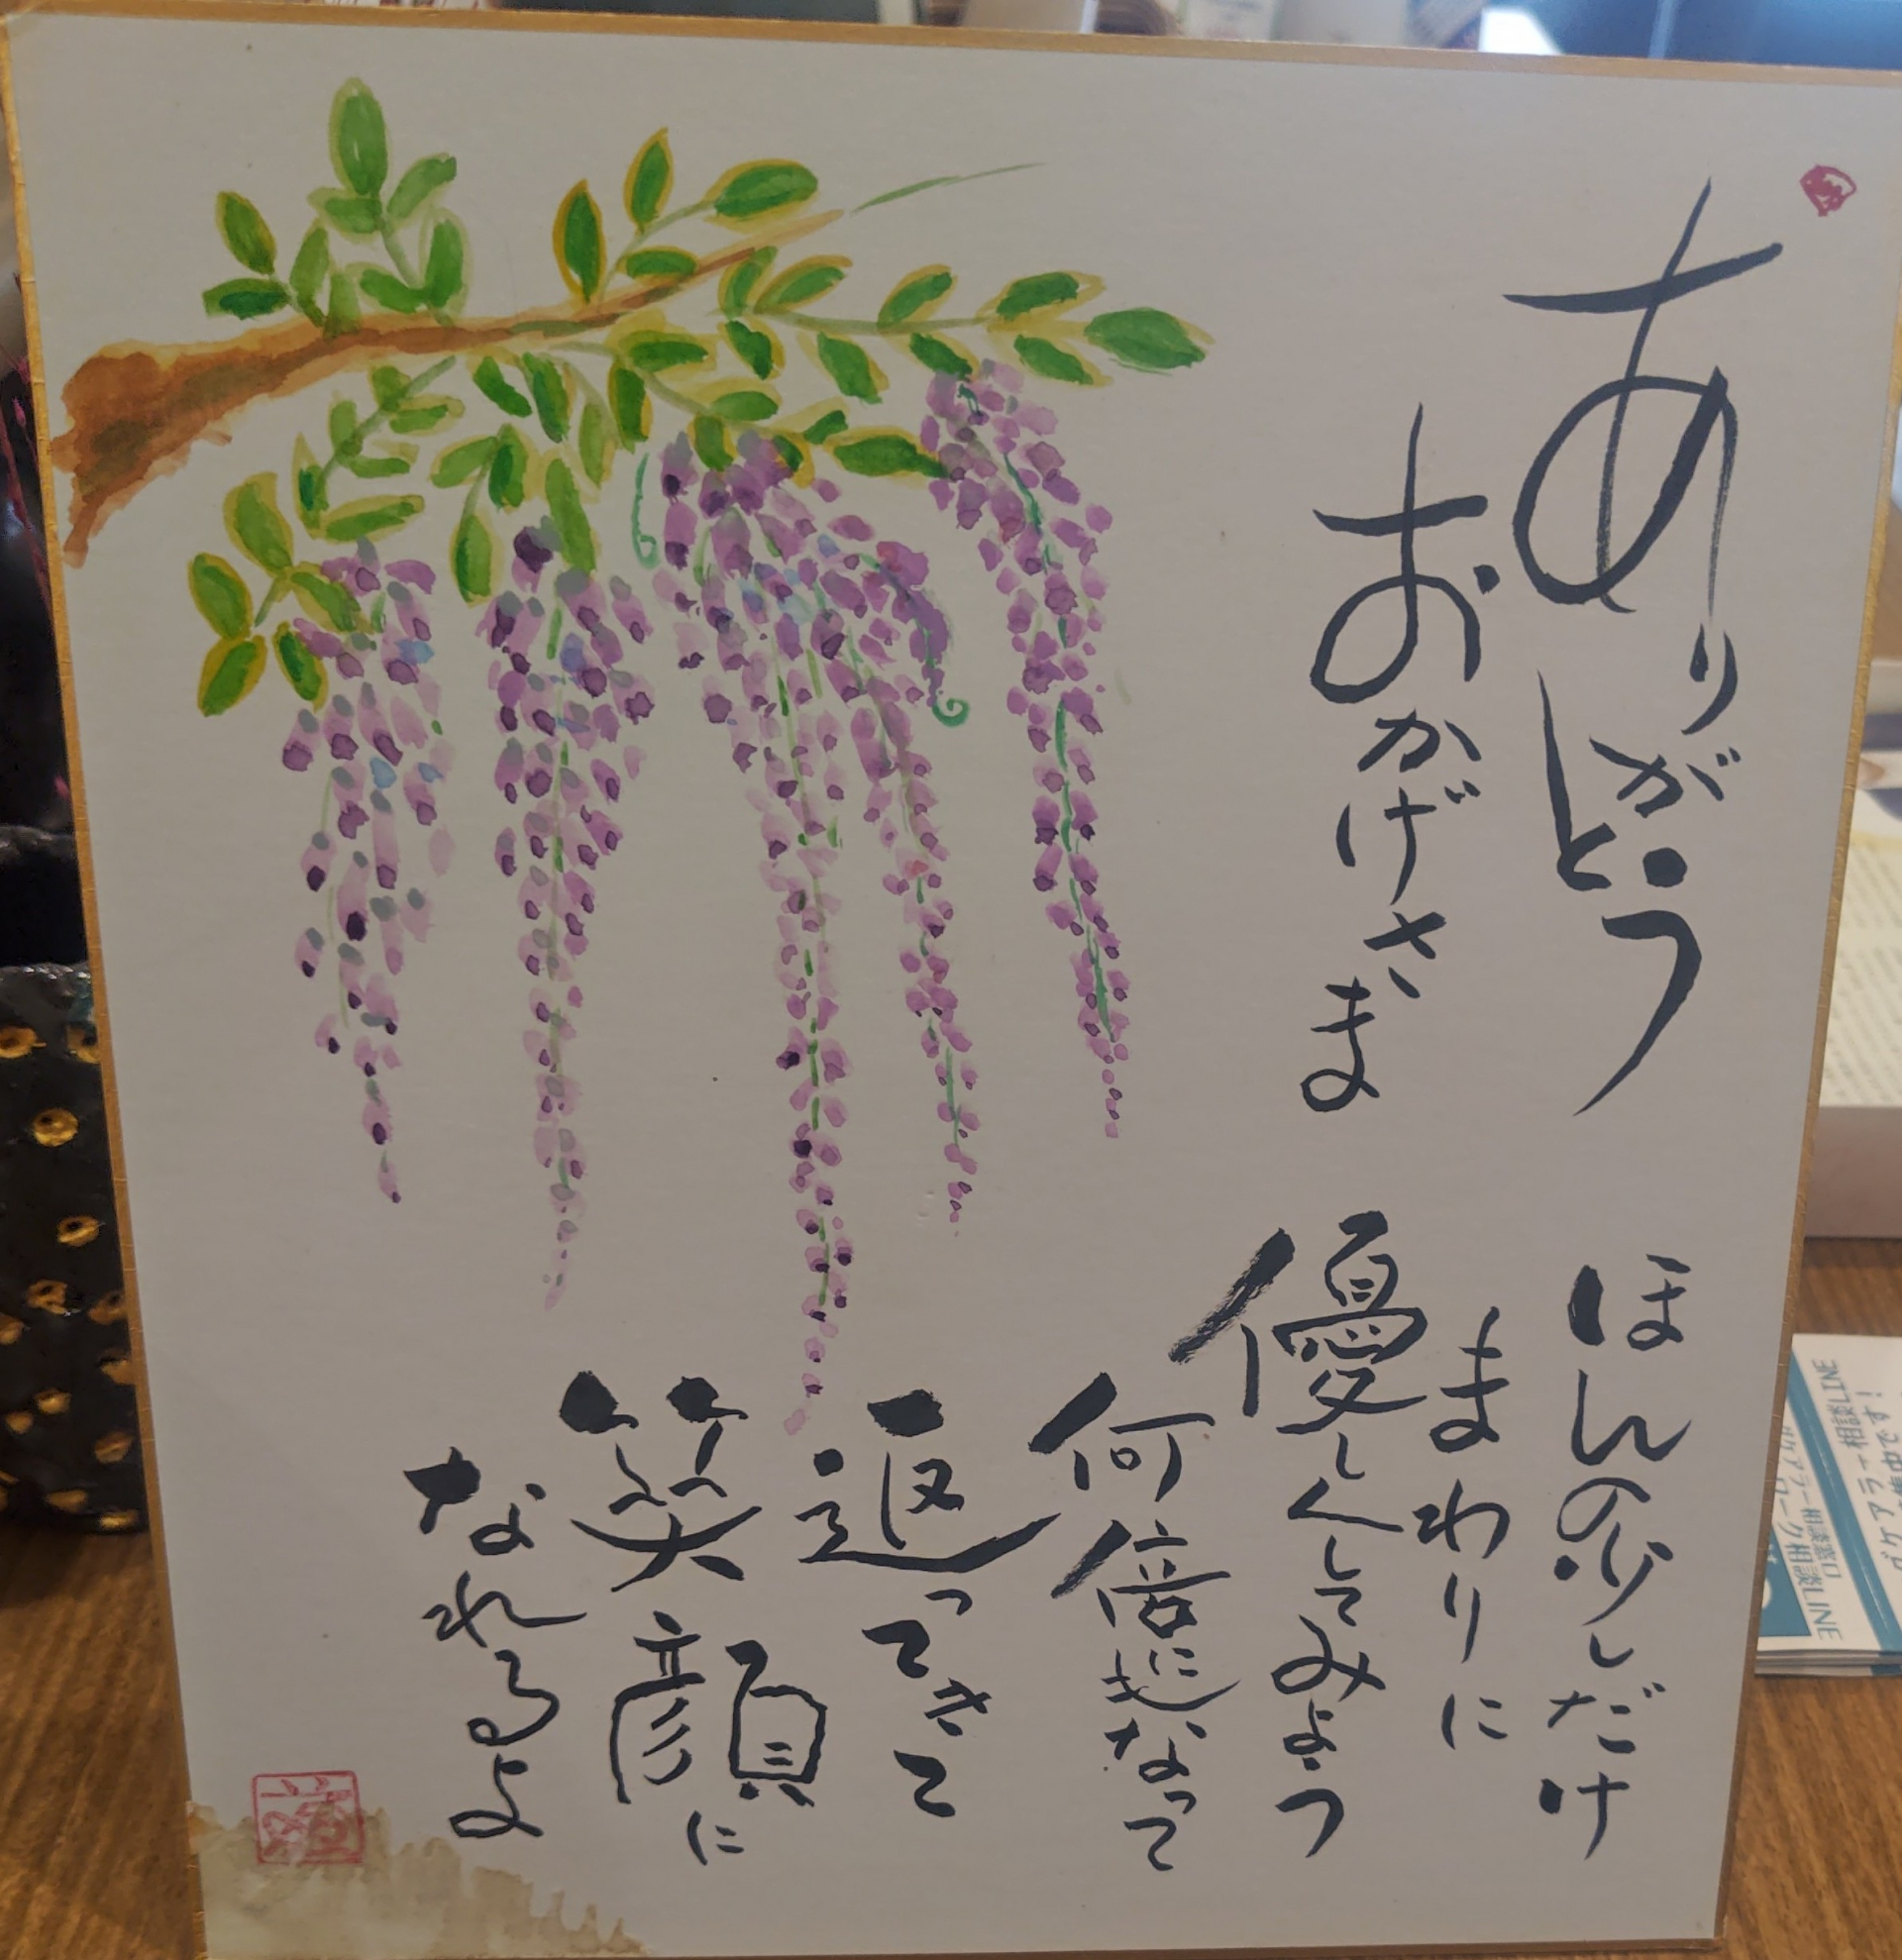 ありがとう
おかげさま
ほんの少しだけ
まわりに
優しくしてみよう
何倍にもなって
返ってきて
笑顔に
なれるよ
ケアラー相談窓口
相談LINE